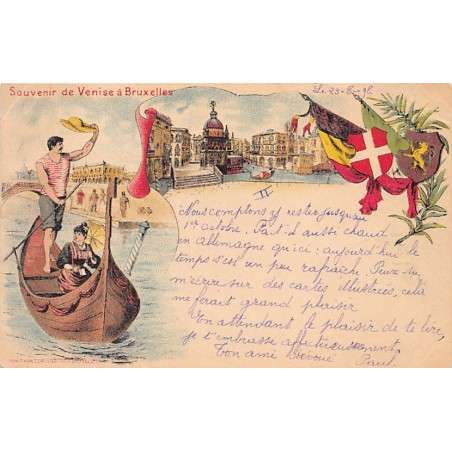 Souvenir de Venise à Bruxelles
Le 23-8-98
II
Nous comptons y rester jusqu'au
1er Octobre. Fait-il aussi chaud
en Allemagne qu'ici : aujourd'hui le
temps s'est un peu rafraîchi. Peux-tu
m'écrire sur des cartes illustrées, cela
me ferait grand plaisir
En attendant le plaisir de te lire,
je t'embrasse affectueusement.
Ton ami dévoué
Paul.